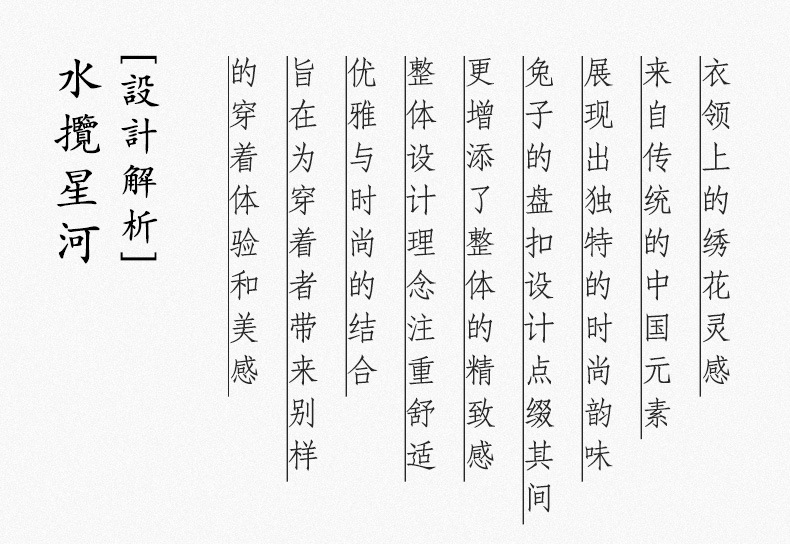 衣领上的绣花灵感
来自传统的中国元素
展现出独特的时尚韵味
兔子的盘扣设计点缀其间
更增添了整体的精致感
整体设计理念注重舒适
优雅与时尚的结合
旨在为穿着者带来别样
的穿着体验和美感
[設計解析]
水攬星河